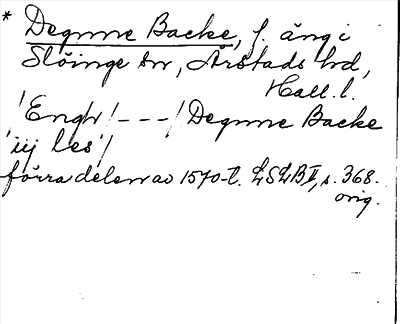 * Degnne Backe, f. äng i
Slöinge sn, Årstads hd,
Hall. l.
/Engh/ – – – / Degnne Backe
iij les/
förra delen av 1570-t. LSLB II, s. 368.
orig.